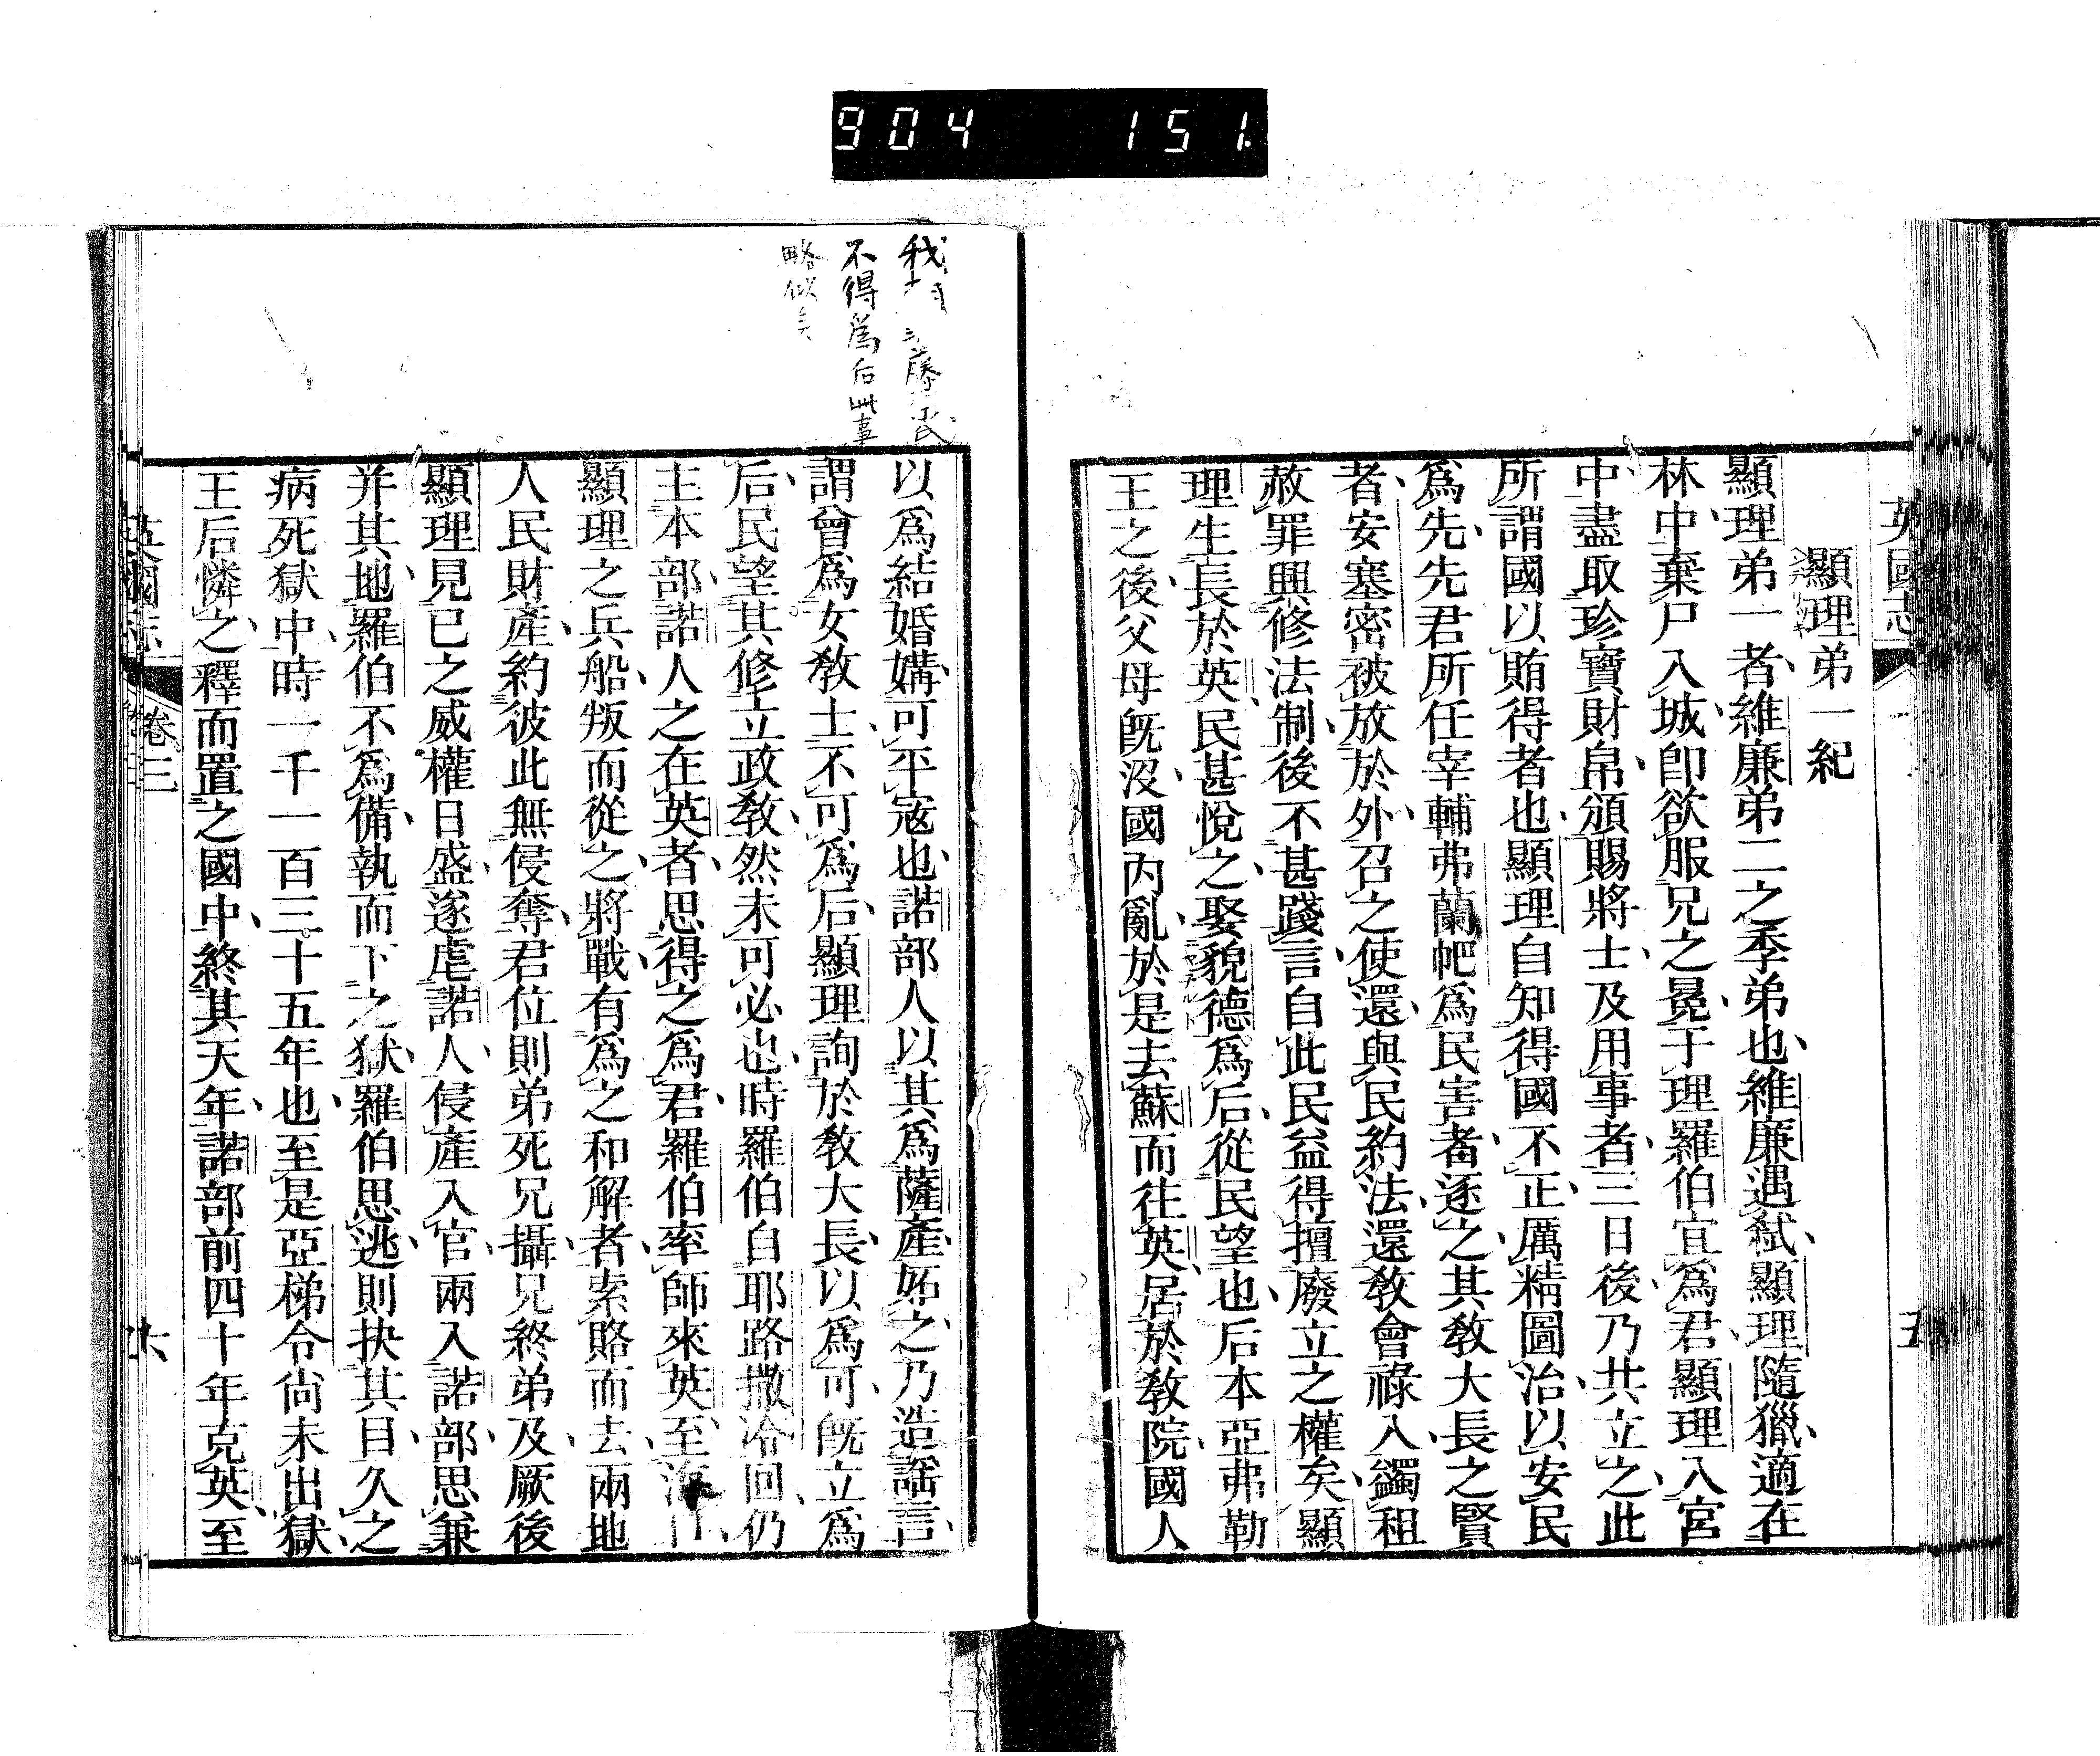 904 151.
英國志
五
顯理弟一紀
顯理弟一者維廉弟二之季弟也維廉遇弑顯理隨獵適在
林中棄尸入城卽欲服兄之冕于理羅伯宜爲君顯理入宮
中盡取珍寶財帛頒賜將士及用事者三日後乃共立之此
所謂國以賄得者也顯理自知得國不正厲精圖治以安民
爲先先君所任宰輔弗蘭帊爲民害者逐之其敎大長之賢
者安塞密被放於外召之使還與民約法還敎會祿入蠲租
赦罪興修法制後不甚踐言自此民益得擅廢立之權矣顯
理生長於英民甚悅之娶貌德爲后從民望也后本亞弗勒
王之後父母旣沒國內亂於是去蘇而往英居於敎院國人
以爲結婚媾可平寇也諾部人以其爲薩產妬之乃造謡言
謂曾爲女敎士不可爲后顯理詢於敎大長以爲可旣立爲
后民望其修立政敎然未可必也時羅伯自耶路撒冷回仍
主本部諾人之在英者思得之爲君羅伯率師來英至海
顯理之兵船叛而從之將戰有爲之和解者索賂而去兩地
人民財產約彼此無侵奪君位則弟死兄攝兄終弟及厥後
顯理見已之威權日盛遂虐諾人侵產入官兩入諾部思兼
并其地羅伯不爲備執而下之獄羅伯思逃則抉其目久之
病死獄中時一千一百三十五年也至是亞梯令尙未出獄
王后憐之釋而置之國中終其天年諾部前四十年克英至
英國志
卷三
六
不得爲后此事
略似